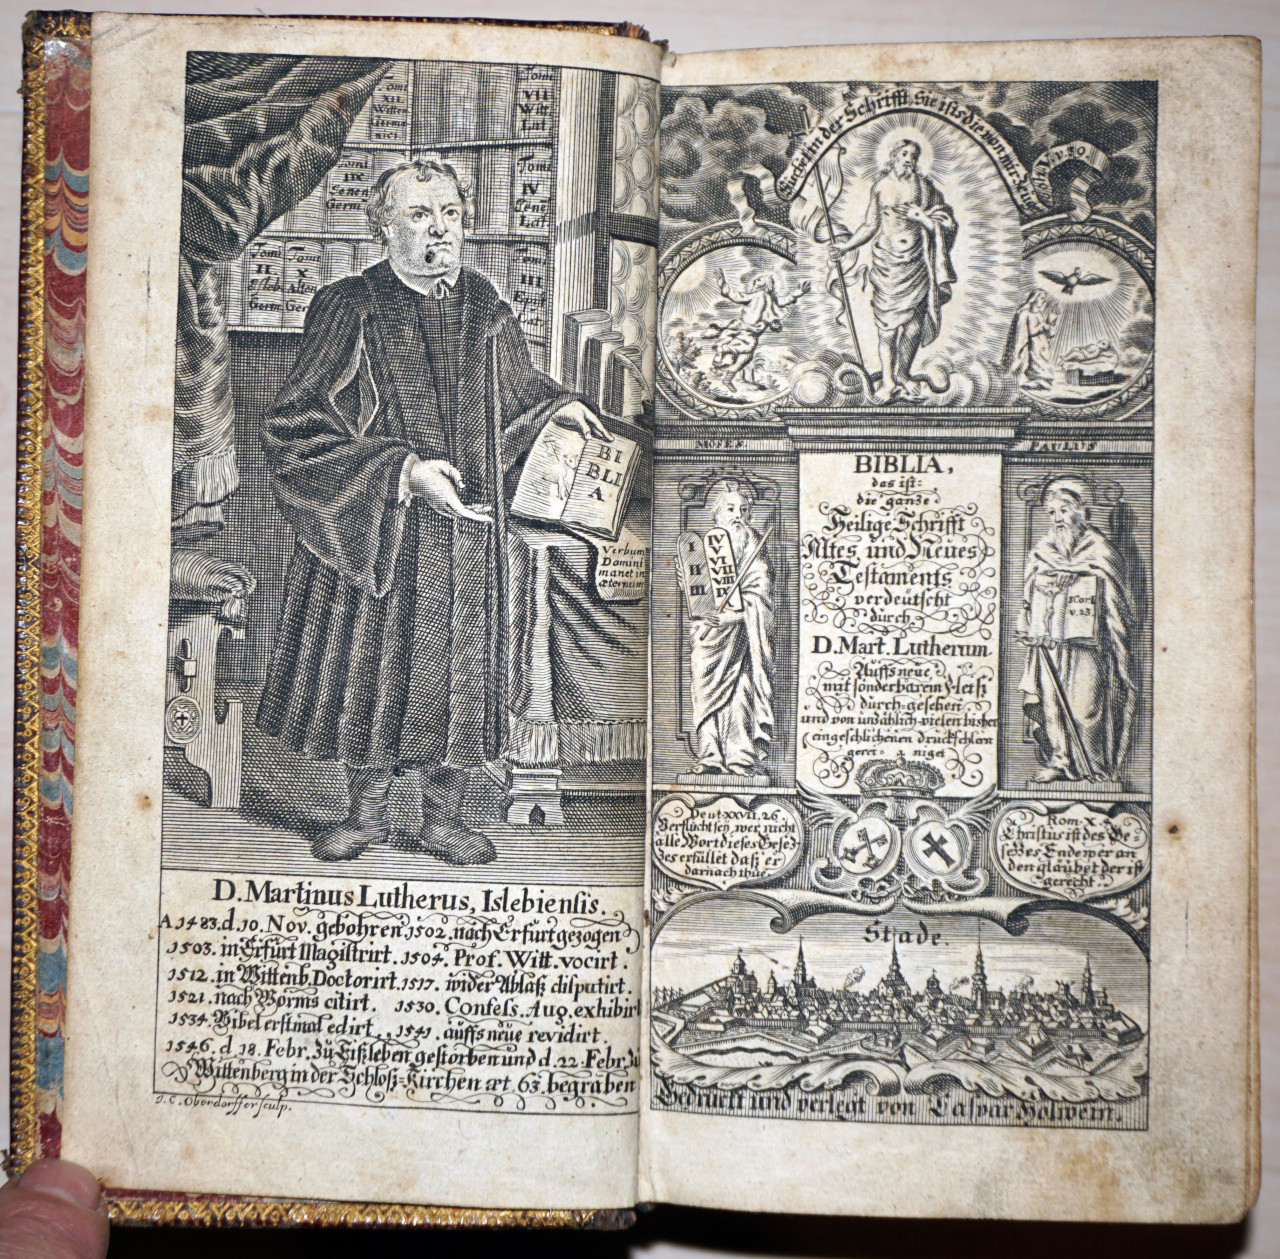 Tomi
XII
Witt
Germa
nici
Tomi
VII
Witt
Lat.
Tomi
IX
Jenen
Germ.
Tomi
IV
Jene
Lat.
Tomi Tomi
II X
Isleb. Alten
Germ. Ger
Tomi
III
Lat:
BI
BLI
A.
Verbum
Domini
manet in
æternum
D. Martinus Lutherus, Islebiensis.
A 1483. d. 10. Nov. gebohren 1502. nach Erfurt gezogen
1503. in Erfurt Magistrirt. 1504. Prof. Witt. vocirt.
1512. in Wittenb. Doctorirt. 1517. wider Ablaß disputirt.
1521. nach Worms citirt. 1530. Confess. Aug. exhibirt
1534. Bibel erstmal edirt. 1541. auffs neue revidirt.
1546. d. 18. Febr. zu Eißleben gestorben und d. 22. Febr. zu
Wittenberg in der Schloß-Kirchen æt. 63. begraben
J. C. Oberdorffer sculp.
Suchet in der Schrifft, Sie ists die von mir zeuget
Joh. V. v. 39.
MOSES.
PAULUS
BIBLIA,
das ist:
die gantze
Heilige Schrifft
Altes und Neües
Testaments
verdeütscht
durch
D. Mart. Lutherum
Auffs neüe
mit sonderbarem Fleiß
durch-gesehen
und von unzählich-vielen bisher
eingeschlichenen druckfehlern
gerei-niget
I
II
III
IV
V
VI
VII
VIII
IX
1 Cor I
v. 23.
Deut XXVII. 26.
Verflucht sey, wer nicht
alle Wort dieses Gesez-
zes erfüllet daß er
darnach thue.
Rom. X. 4
Christus ist des Ge-
setzes Ende wer an
den gläubet der ist
gerecht.
Stade.
Gedruckt und verlegt von Caspar Holwein.